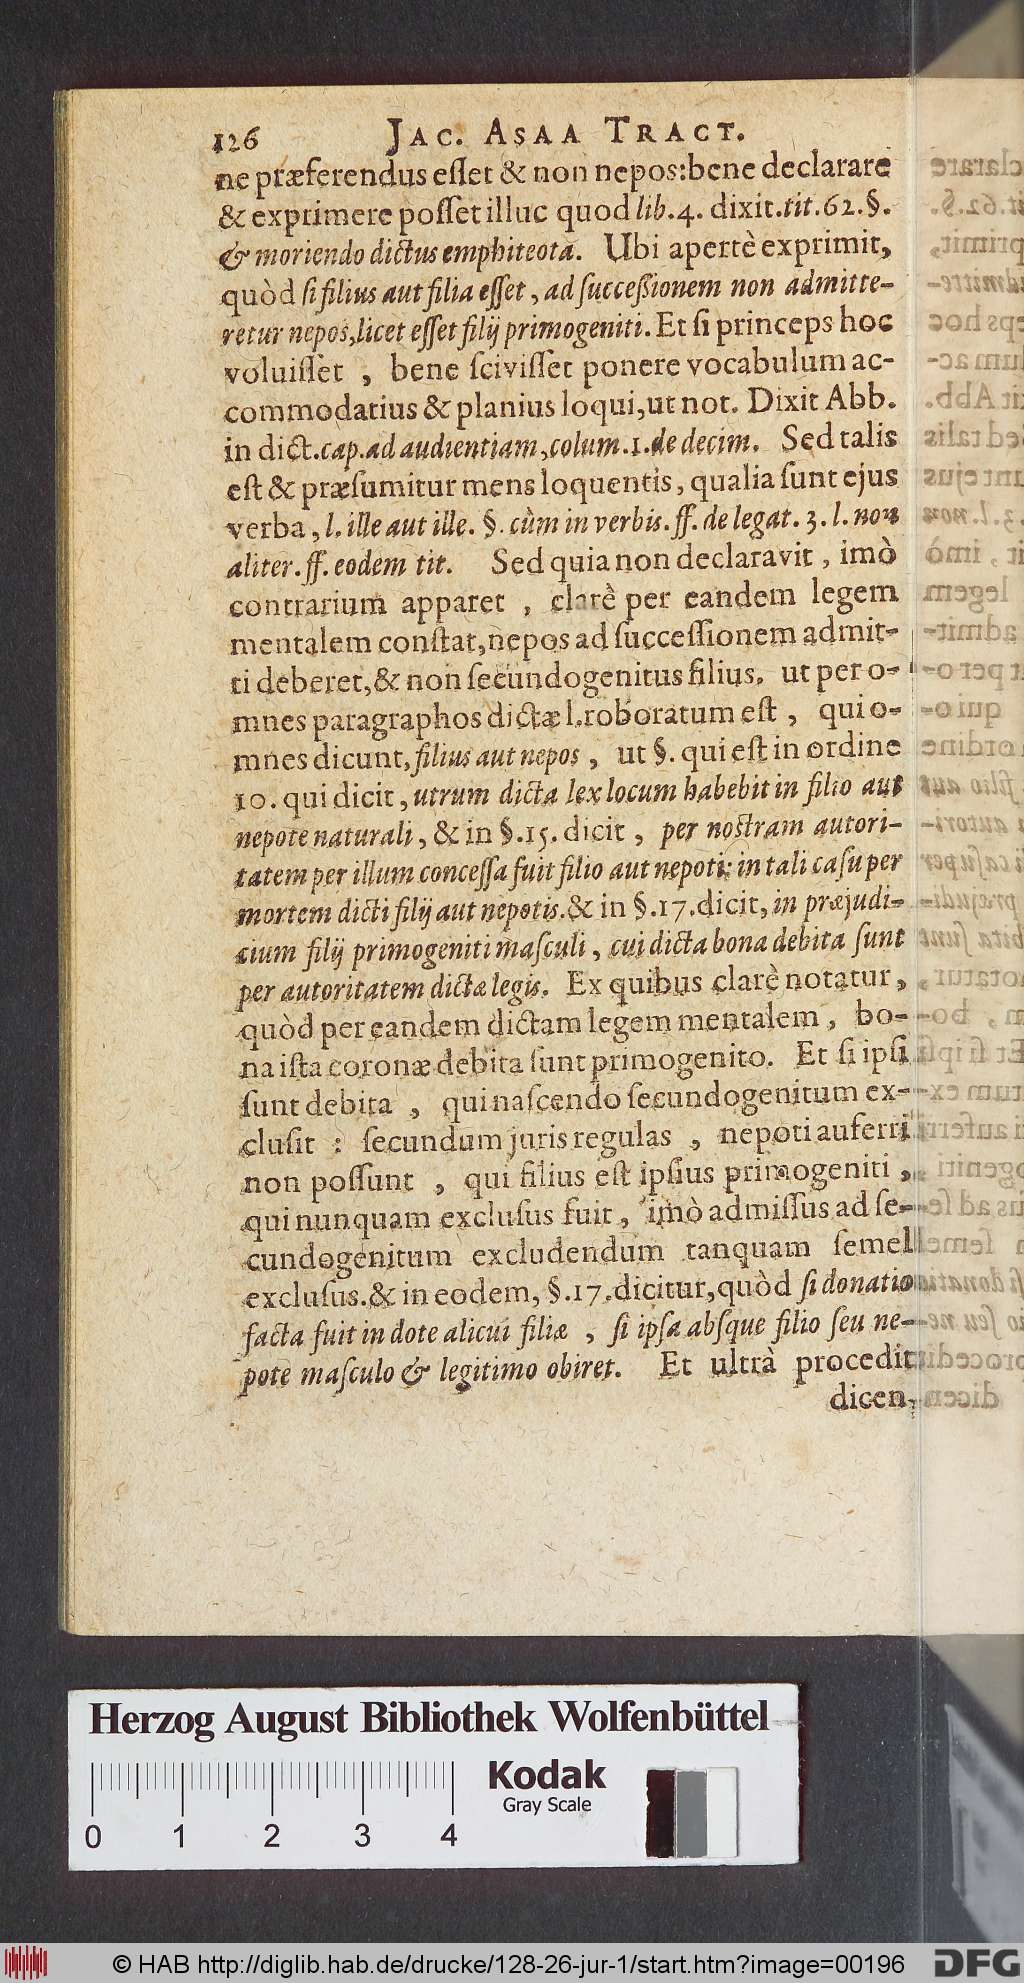 126 JAC. ASAA TRACT.
ne præferendus eſſet & non nepos: bene declarare
& exprimere poſſet illuc quod lib. 4. dixit. tit. 62. §.
& moriendo dictus emphiteota. Ubi apertè exprimit,
quòd ſi filius aut filia eſſet, ad ſucceſſionem non admitte-
retur nepos, licet eſſet filij primogeniti. Et ſi princeps hoc
voluiſſet, bene ſciviſſet ponere vocabulum ac-
commodatius & planius loqui, ut not. Dixit Abb.
in dict. cap. ad audientiam, colum. 1. de decim. Sed talis
eſt & præſumitur mens loquentis, qualia ſunt ejus
verba, l. ille aut ille. §. cùm in verbis. ff. de legat. 3. l. non
aliter. ff. eodem tit. Sed quia non declaravit, imò
contrarium apparet, clarè per eandem legem
mentalem conſtat, nepos ad ſucceſſionem admit-
ti deberet, & non ſecundogenitus filius, ut per o-
mnes paragraphos dictæ l. roboratum eſt, qui o-
mnes dicunt, filius aut nepos, ut §. qui eſt in ordine
10. qui dicit, utrum dicta lex locum habebit in filio aut
nepote naturali, & in §. 15. dicit, per noſtram autori-
tatem per illum conceſſa fuit filio aut nepoti: in tali caſu per
mortem dicti filij aut nepotis. & in §. 17. dicit, in præjudi-
cium filij primogeniti maſculi, cui dicta bona debita ſunt
per autoritatem dictæ legis. Ex quibus clarè notatur,
quòd per eandem dictam legem mentalem, bo-
na iſta coronæ debita ſunt primogenito. Et ſi ipſi
ſunt debita, qui naſcendo ſecundogenitum ex-
cluſit: ſecundum juris regulas, nepoti auferri
non poſſunt, qui filius eſt ipſius primogeniti,
qui nunquam excluſus fuit, imò admiſſus ad ſe-
cundogenitum excludendum tanquam ſemel
excluſus. & in eodem, §. 17. dicitur, quòd ſi donatio
facta fuit in dote alicui filiæ, ſi ipſa abſque filio ſeu ne-
pote maſculo & legitimo obiret. Et ultrà procedit
dicen-
Herzog August Bibliothek Wolfenbüttel
Kodak
Gray Scale
0 1 2 3 4
© HAB http://diglib.hab.de/drucke/128-26-jur-1/start.htm?image=00196
DFG